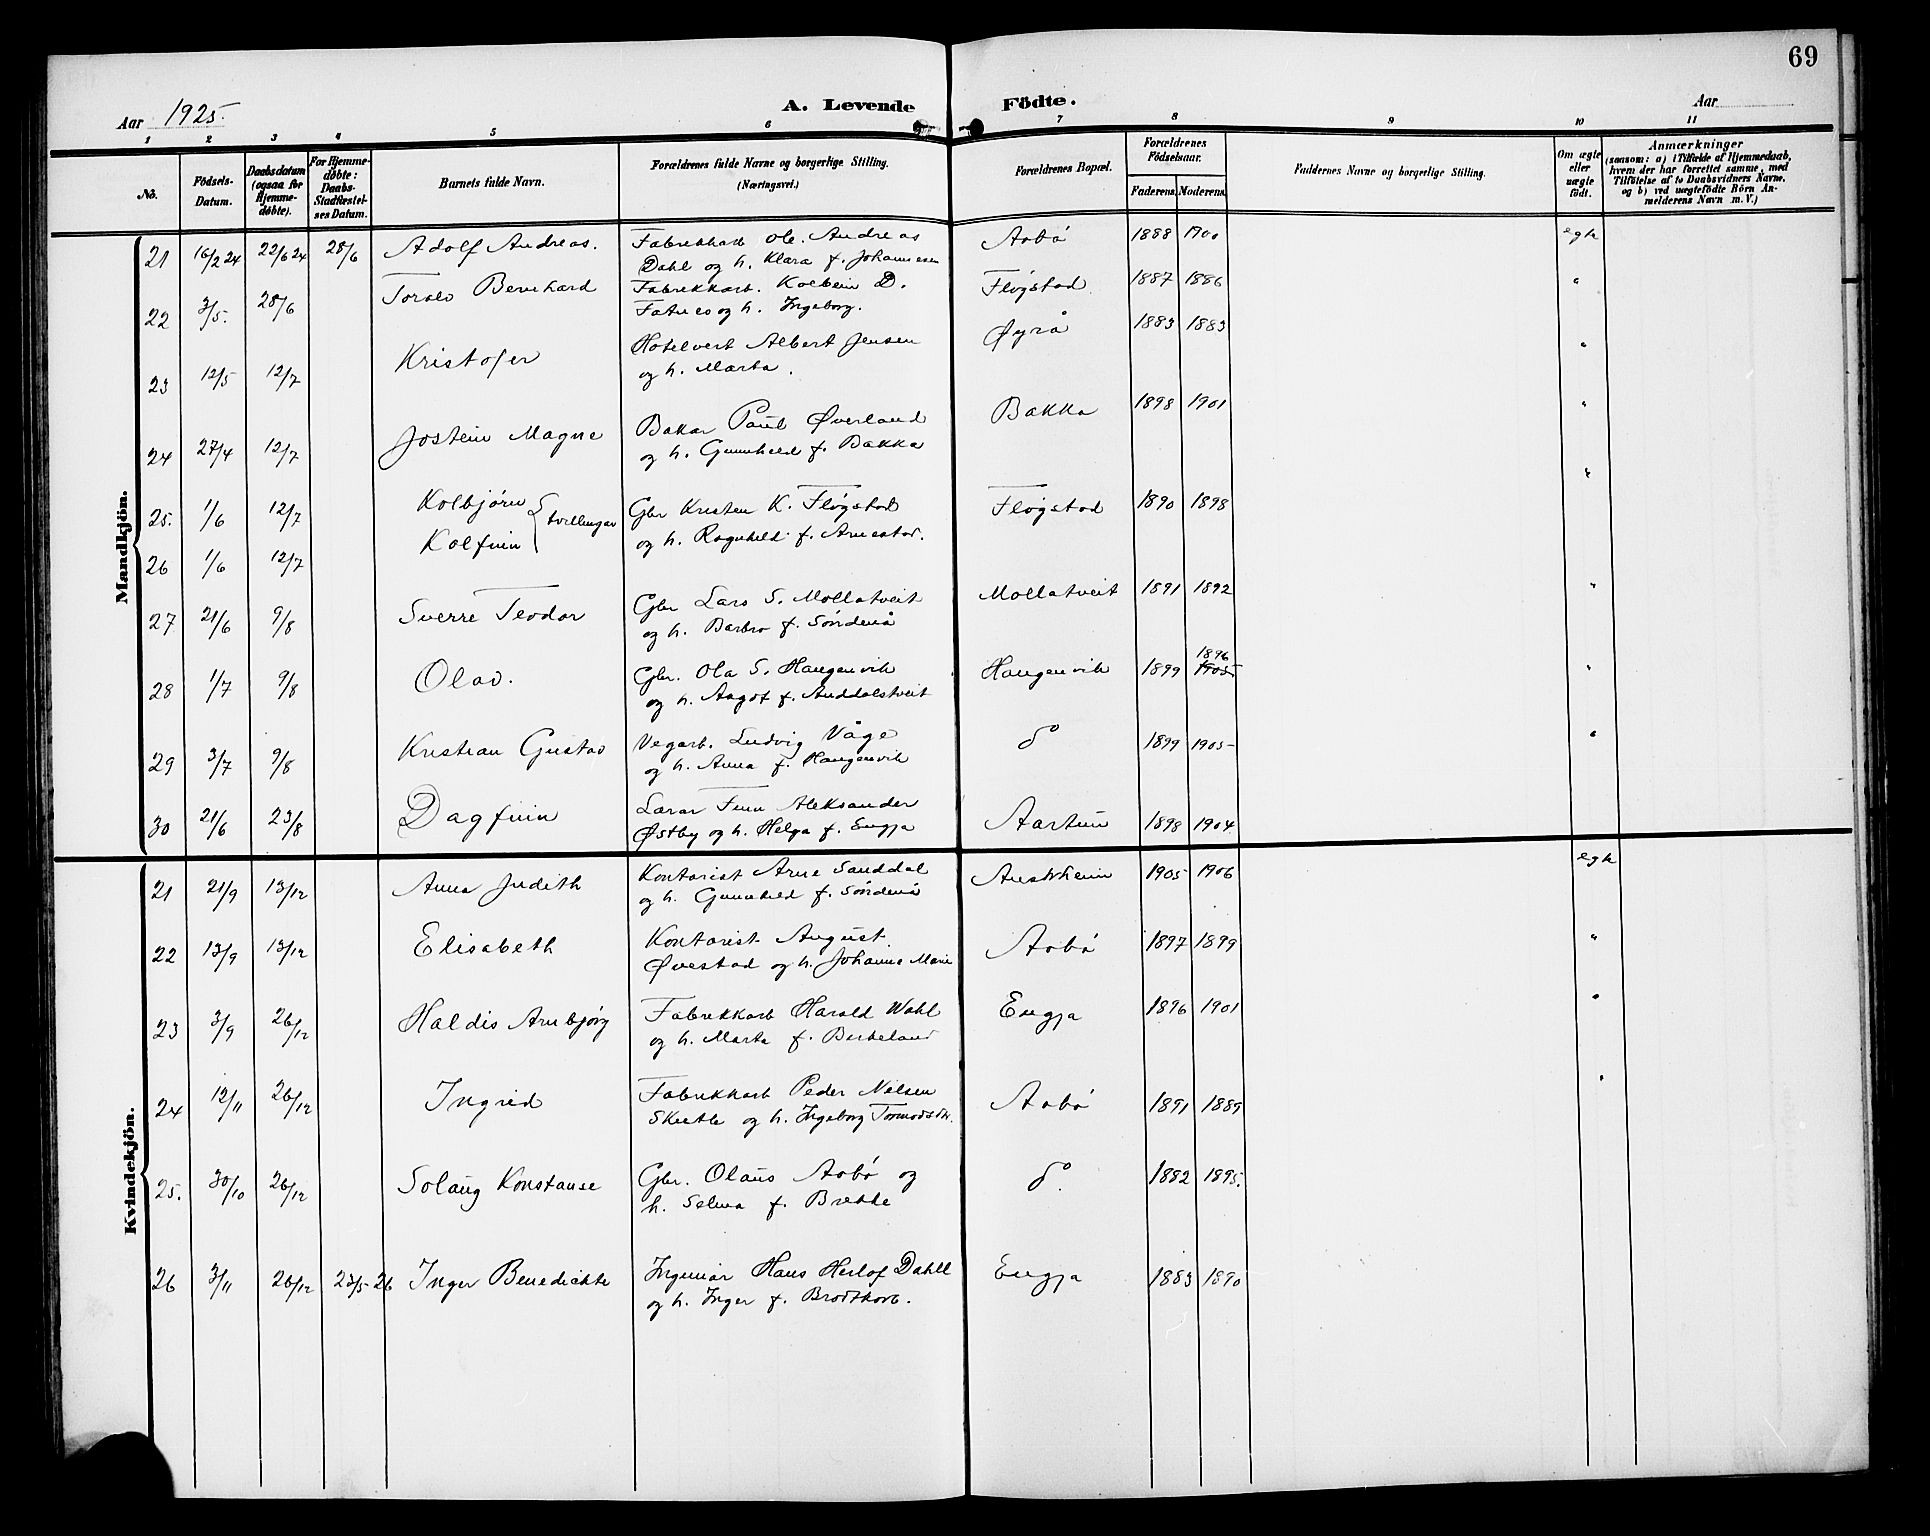 69
Aar 1925. A. Levende Födte. Aar
1 2 3 4 5 6 7 8 8 9 10 11
No. Födsels-Datum. Daabsdatum (ogsaa for Hjemme-döbte). For Hjemme-döbte: Daabs-Stadfæstel-ses Datum. Barnets fulde Navn. Forældrenes fulde Navne og borgerlige Stilling. (Næringsvei.) Forældrenes Bopæl. Forældrenes Födselsaar. Faderens. Moderens. Faddernes Navne og borgerlige Stilling. Om ægte eller uægte födt. Anmærkninger (saasom: a) i Tilfælde af Hjemmedaab, hvem der har forrettet samme, med Tilföielse af to Daabsvidners Navne, og b) ved uægtefödte Börn Anmelderens Navn m. V.)
Mandkjön.
21 16/2 24 22/6 24 28/6 Adolf Andreas. Fabrikkarb Ole Andreas Aabö 1888 1900 egte
Dahl og h. Klara f. Johannesen
22 3/5. 28/6 Torald Bernhard Fabrikkarb. Kolbein D. Fløgstad 1887 1886 "
Fatnes og h. Ingeborg.
23 12/5 12/7 Kristofer Hotelvert Albert Jensen Øyrå 1883 1883 "
og h. Marta.
24 27/4 12/7 Jostein Magne Bakar Paul Øverland Bakka 1898 1901 "
og h. Gunnhild f. Bakka
25. 1/6 12/7 Kolbjørn tvillingar Gbr Kristen K. Fløgstad Fløgstad 1890 1898 "
26 1/6 12/7 Kolfinn og h. Ragnhild f. Arnestad.
27 21/6 9/8 Sverre Teodor Gbr Lars S. Mollatveit Mollatveit 1891 1892 "
og h. Barbro f. Söndenå
28 1/7 9/8 Olav. Gbr. Ola S. Haugenvik Haugenvik 1899 1896 1905 "
og h. Aagot f. Anddalstveit
29 3/7 9/8 Kristian Gustav Vegarb. Ludvig Våge do 1899 1905 "
og h. Anna f. Haugenvik
30 21/6 23/8 Dagfinn Lærar Finn Aleksander Aartun 1898 1904
Østby og h. Helga f. Engja
Kvindekjön.
21 21/9 13/12 Anna Judith Kontorist Arne Sanddal Austrheim 1905 1906 egte
og h. Gunnhild f. Söndenå
22 13/9 13/12 Elisabeth Kontorist August Aabö 1897 1899 "
Øvestad og h. Johanne Marie
23 3/9 26/12 Haldis Arnbjørg Fabrikkarb Harald Wahl Engja 1896 1901 "
og h. Marta f. Berkeland
24 12/11 26/12 Ingrid Fabrikkarb Peder Nilsen Aabö 1891 1889 "
og h. Ingeborg
25. 30/10 26/12 Solaug Konstanse Gbr. Olaus Aabö og do 1882 1895.
h. Selma f. Brekke
26 3/11 26/12 23/5 26 Inger Benedichte Ingeniør Hans Herlof Dahll Engja 1883 1890
og h. Inger f. Brodtkorb.